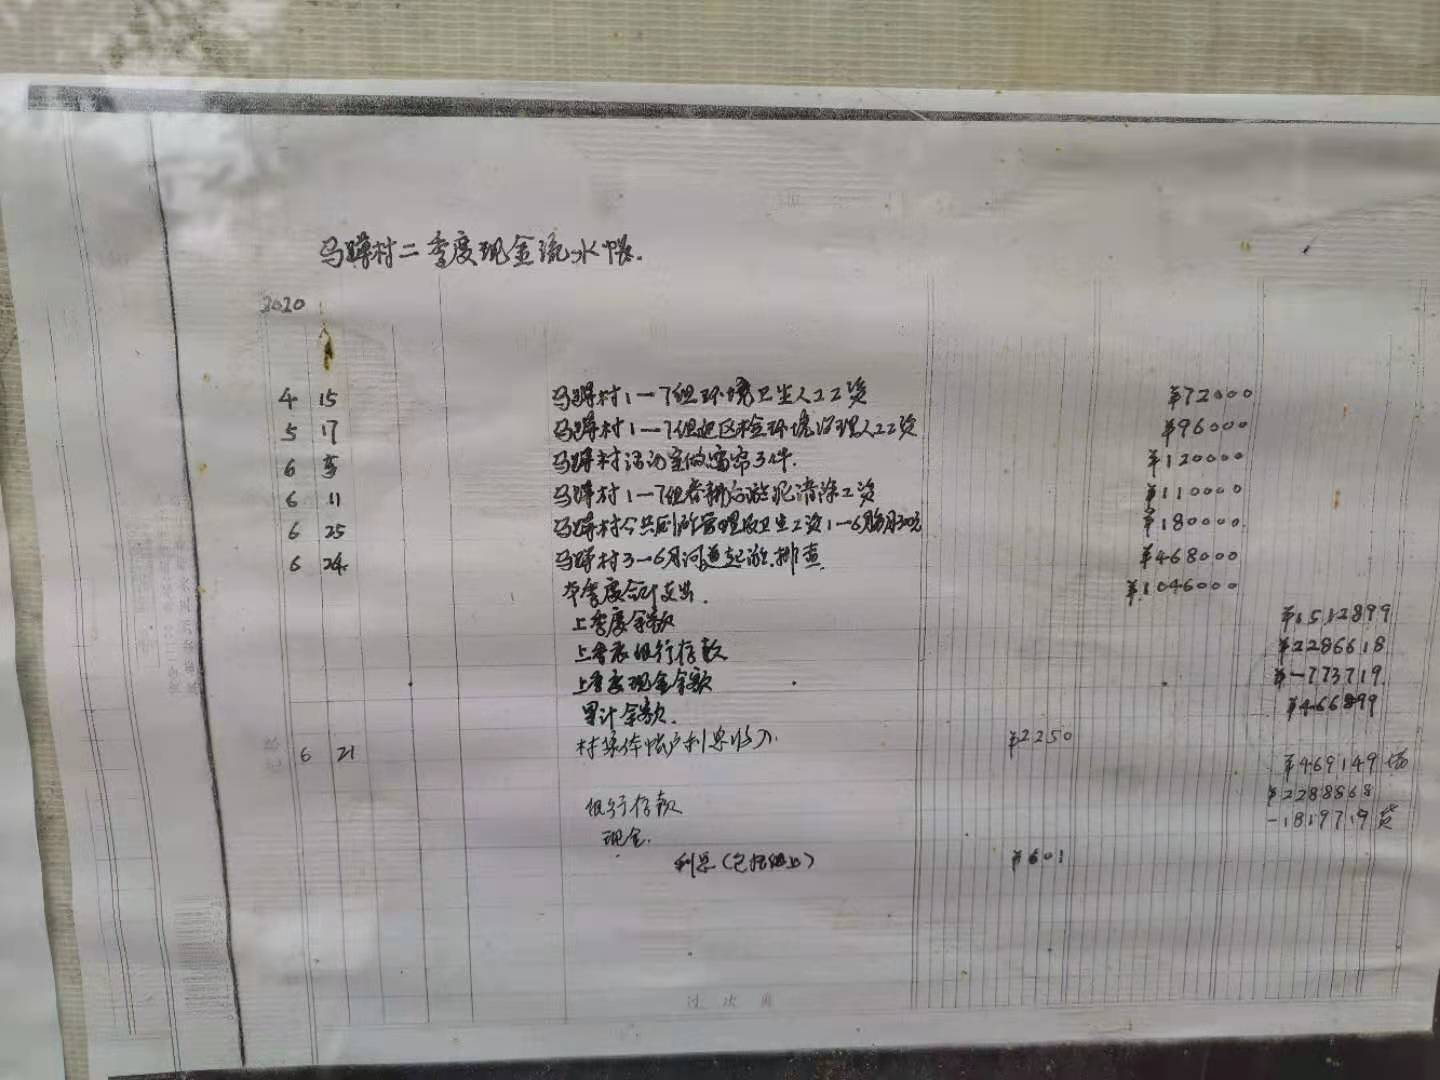 马蹲村二季度现金流水帐.
2020
4 15 马蹲村1一7组环境卫生人工工资 ¥72000
5 17 马蹲村1一7组迎区检环境治理人工工资 ¥96000
6 马蹲村活动室做窗帘3件. ¥120000
6 11 马蹲村1一7组春耕沟淤泥清除工资 ¥110000
6 25 马蹲村公共厕所管理及卫生工资1一6月每月300元 ¥180000
6 24 马蹲村3一6月河道起淤.排查. ¥468000
本季度合计支出. ¥1046000
上季度余款 ¥1512899
上季度银行存款 ¥2286618
上季度现金余额 ¥-773719
累计余额. ¥466899
6 21 村集体帐户利息收入. ¥2250
¥469149
银行存款 ¥2288868
现金. -1819719
利息(包括组上) ¥601
过次页